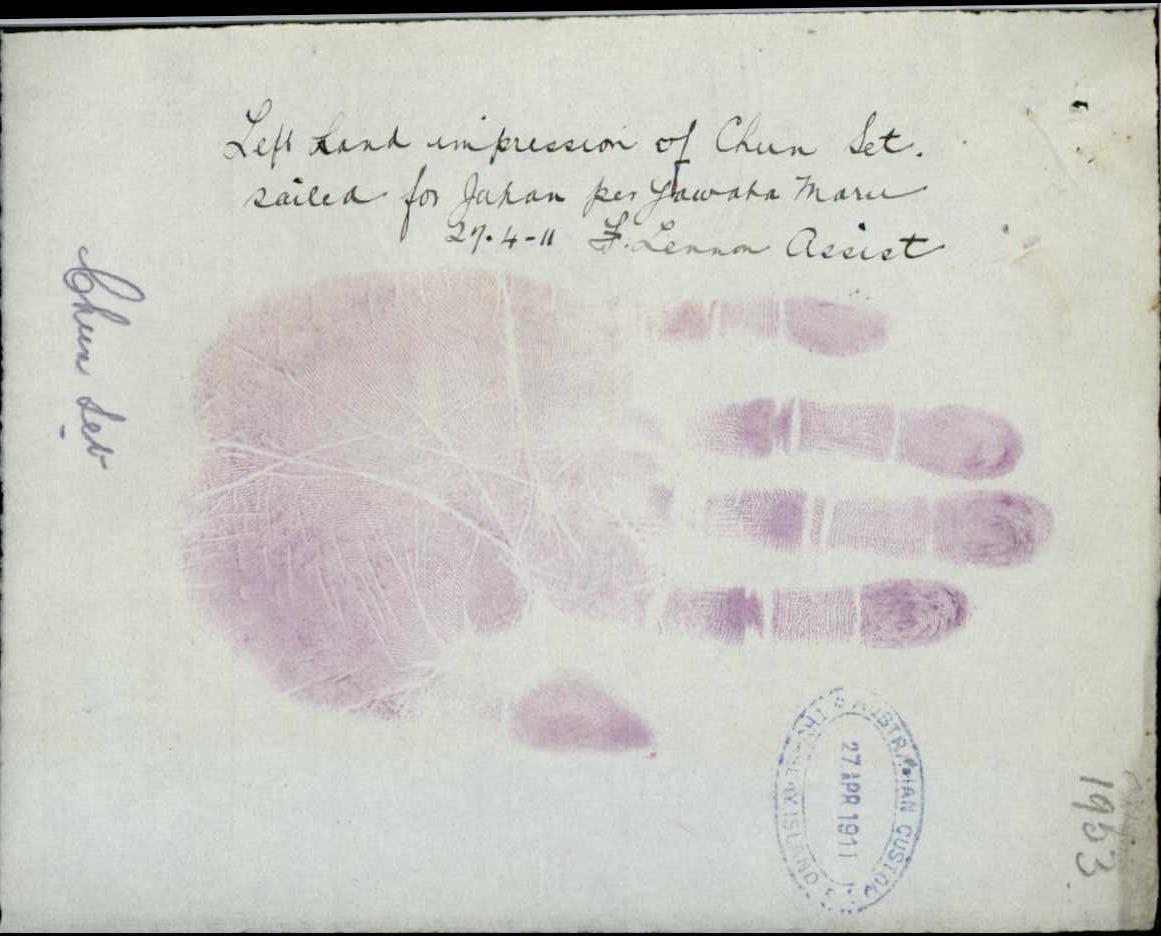 Left hand impression of Chun Set.
sailed for Japan per Yawata Maru
27.4-11 F. Lennon Assist
Chun Set
AUSTRALIAN CUSTOMS
THURSDAY ISLAND
27 APR 1911
1953